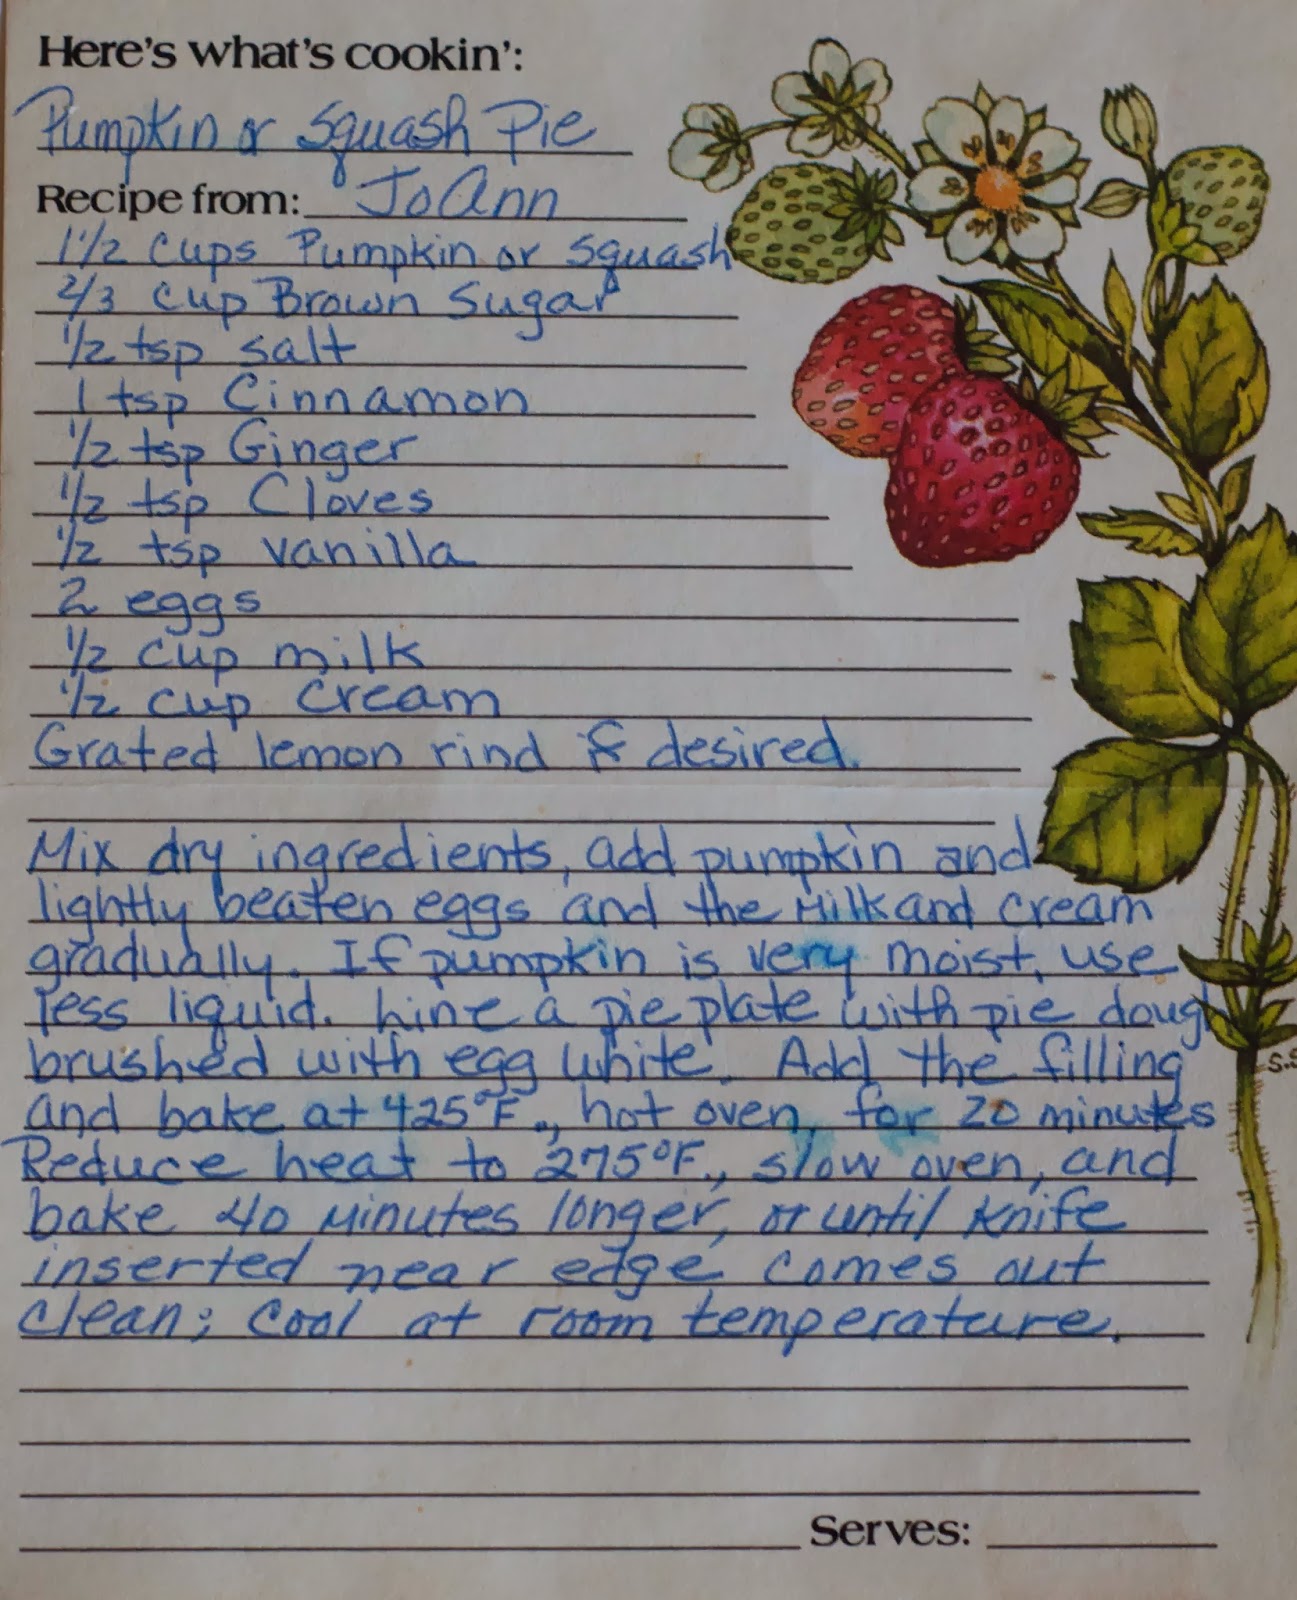 Here's what's cookin':
Pumpkin or Squash Pie
Recipe from: JoAnn
1 1/2 cups Pumpkin or Squash
2/3 cup Brown Sugar
1/2 tsp salt
1 tsp Cinnamon
1/2 tsp Ginger
1/2 tsp Cloves
1/2 tsp vanilla
2 eggs
1/2 cup milk
1/2 cup cream
Grated lemon rind if desired.
Mix dry ingredients, add pumpkin and
lightly beaten eggs and the milk and cream
gradually. If pumpkin is very moist, use
less liquid. Line a pie plate with pie dough
brushed with egg white. Add the filling
and bake at 425°F., hot oven, for 20 minutes
Reduce heat to 275°F., slow oven, and
bake 40 minutes longer, or until knife
inserted near edge comes out
clean; cool at room temperature.
Serves: